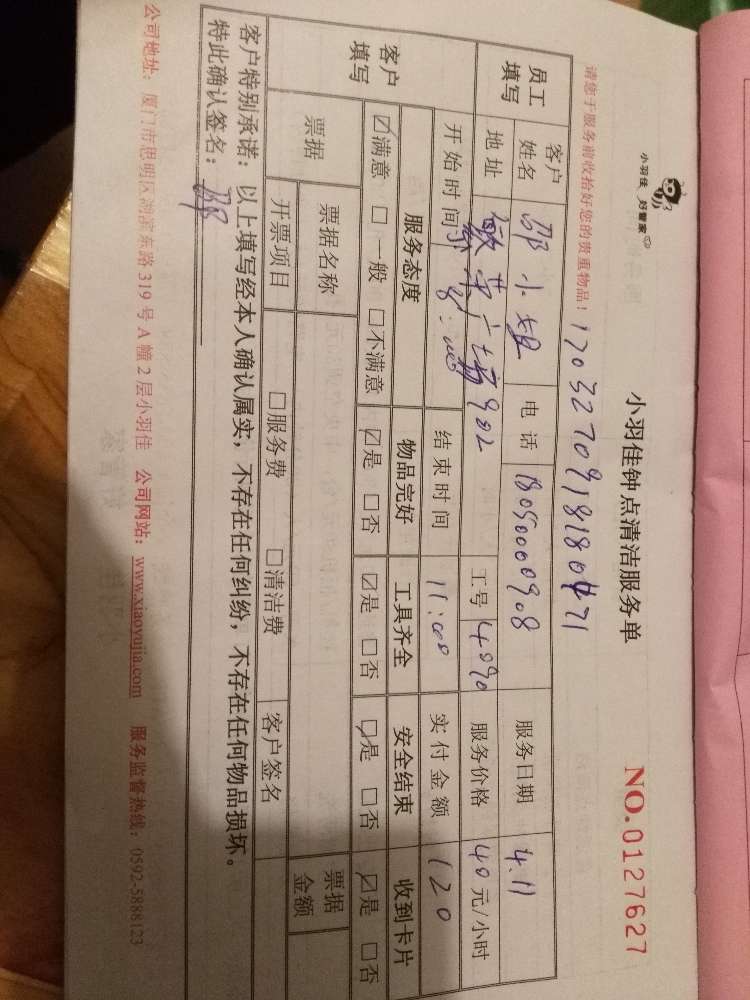 小羽佳 好管家
小羽佳钟点清洁服务单
NO.0127627
请您于服务前收拾好您的贵重物品！
员工填写 客户姓名 邵小姐 电话 18050000908 服务日期 4.11
地址 广场902 工号 4090 服务价格 40元/小时
客户填写 开始时间 8:00 结束时间 11:00 实付金额 120
服务态度 物品完好 工具齐全 安全结束 收到卡片
☑满意 □一般 □不满意 ☑是 □否 ☑是 □否 ☑是 □否 ☑是 □否
票据 票据名称 票据金额
开票项目 □服务费 □清洁费 客户签名
客户特别承诺：以上填写经本人确认属实，不存在任何纠纷，不存在任何物品损坏。
特此确认签名：邵
公司地址：厦门市思明区湖滨东路319号A幢2层小羽佳 公司网站：www.xiaoyujia.com 服务监督热线：0592-5888123